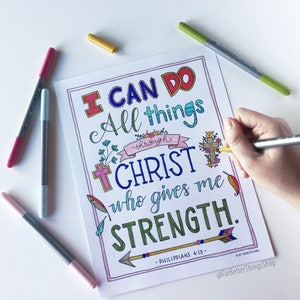 I CAN DO
All things
through
CHRIST
who gives me
STRENGTH.
• PHILIPPIANS 4:13 •
@FarBetterThingsShop